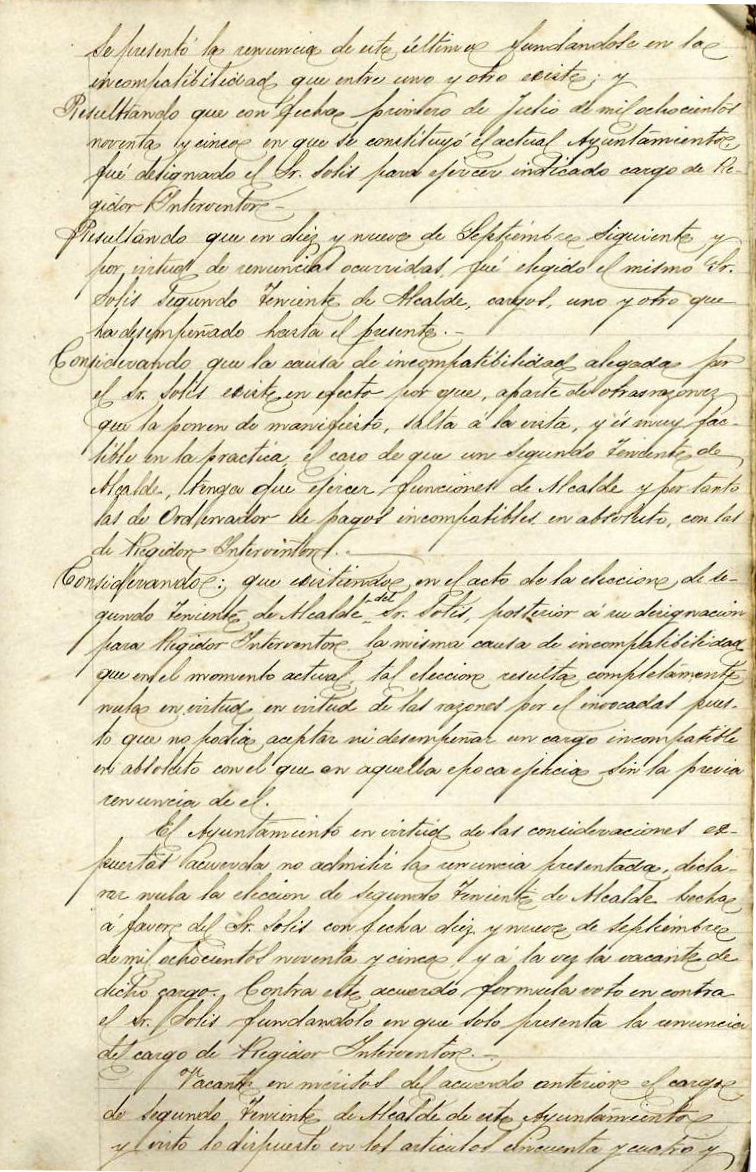 se presentó la renuncia de este último fundandose en la
incompatibilidad que entre uno y otro existe; y
Resultando que con fecha primero de Julio de mil ochocientos
noventa y cinco en que se constituyó el actual Ayuntamiento,
fué designado el Sr. Solis para ejercer indicado cargo de Re-
gidor Interventor.-
Resultando que en diez y nueve de Septiembre siguiente y
por virtud de renuncias ocurridas, fué elegido el mismo Sr.
Solis Segundo Teniente de Alcalde, cargos, uno y otro que
ha desempeñado hasta el presente.-
Considerando que la causa de incompatibilidad alegada por
el Sr. Solis existe en efecto por que, aparte de otras razones
que la ponen de manifiesto, salta á la vista, y es muy fac-
tible en la practica, el caso de que un Segundo Teniente de
Alcalde, tenga que ejercer funciones de Alcalde y por tanto
las de Ordenador de pagos incompatibles en absoluto, con las
de Regidor Interventor.-
Considerando: que existiendo en el acto de la eleccion de se-
gundo Teniente de Alcalde del Sr. Solis, posterior á su designación
para Regidor Interventor la misma causa de incompatibilidad
que en el momento actual, tal eleccion resulta completamente
nula en virtud en virtud de las razones por el invocadas pues-
to que no podia aceptar ni desempeñar un cargo incompatible
en absoluto con el que en aquella epoca ejercia sin la previa
renuncia de el.
El Ayuntamiento en virtud de las consideraciones ex-
puestas acuerda no admitir la renuncia presentada, decla-
rar nula la eleccion de segundo Teniente de Alcalde hecha
á favor del Sr. Solis con fecha diez y nueve de septiembre
de mil ochocientos noventa y cinco y á la vez la vacante de
dicho cargo. Contra este acuerdo formula voto en contra
el Sr. Solis fundandolo en que solo presenta la renuncia
del cargo de Regidor Interventor.-
Vacante en méritos del acuerdo anterior el cargo
de segundo Teniente de Alcalde de este Ayuntamiento
y visto lo dispuesto en los articulos cincuenta y cuatro y